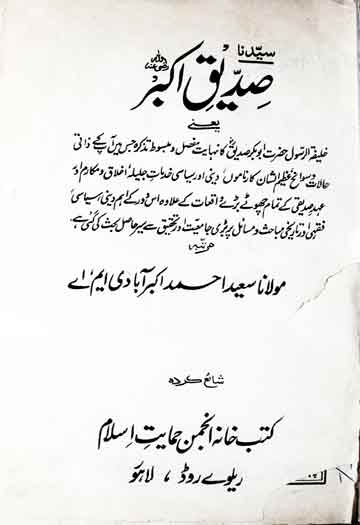 سیّدنا
صدّیقِ اکبرؓ
یعنے
خلیفۃ الرسول حضرت ابوبکر صدیقؓ کا نہایت مفصل و مبسوط تذکرہ جس میں آپ کے ذاتی
حالات و سوانح عظیم الشان کارناموں، دینی اور سیاسی خدمات جلیلہ، اخلاق و مکارم اور
عہد صدیقی کے تمام چھوٹے بڑے واقعات کے علاوہ اس دور کے اہم دینی، سیاسی،
فقہی اور تاریخی مباحث و مسائل پر پوری جامعیت اور تحقیق سے سیر حاصل بحث کی گئی ہے۔
مرتبہ
مولانا سعید احمد اکبر آبادی ایم اے
شائع کردہ
کتب خانہ انجمن حمایتِ اسلام
ریلوے روڈ، لاہور